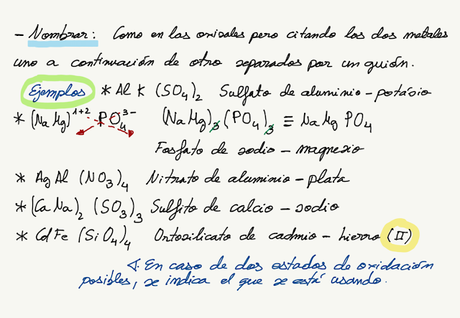 - Nombrar: Como en las oxisales pero citando los dos metales
uno a continuación de otro separados por un guión.
Ejemplos * Al K (SO₄)₂ Sulfato de aluminio - potásio
* (Na Mg)¹⁺² PO₄³⁻ (Na Mg)₃ (PO₄)₃ ≡ Na Mg PO₄
Fosfato de sodio - magnesio
* Ag Al (NO₃)₄ Nitrato de aluminio - plata
* (Ca Na)₂ (SO₃)₃ Sulfito de calcio - sodio
* Cd Fe (SiO₄)₄ Ortosilicato de cadmio - hierro (II)
En caso de dos estados de oxidación
posibles, se indica el que se está usando.